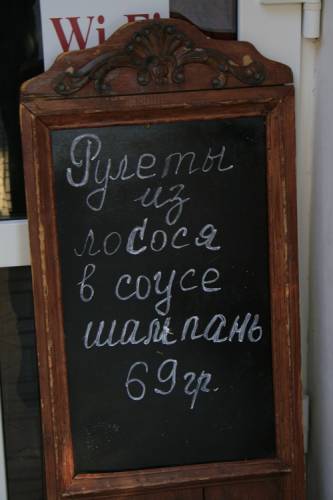 Wi Fi
Рулеты
из
лосося
в соусе
шампань
69гр.